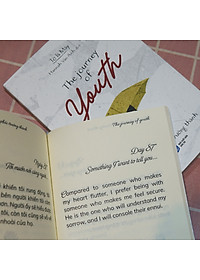 Tờ Lơ Mơ
The journey
of
Youth
The journey of youth
Day 87
Something I want to tell you...
Compared to someone who makes
my heart flutter, I prefer being with
someone who makes me feel secure.
He is the one who will understand my
sorrow, and I will console their ennui.
trưởng thành
Ngày 87
khiến tôi rung động,
bên người khiến tôi
Người ấy sẽ hiểu được
tôi, còn tôi cũng sẽ vỗ
nhoài của họ.